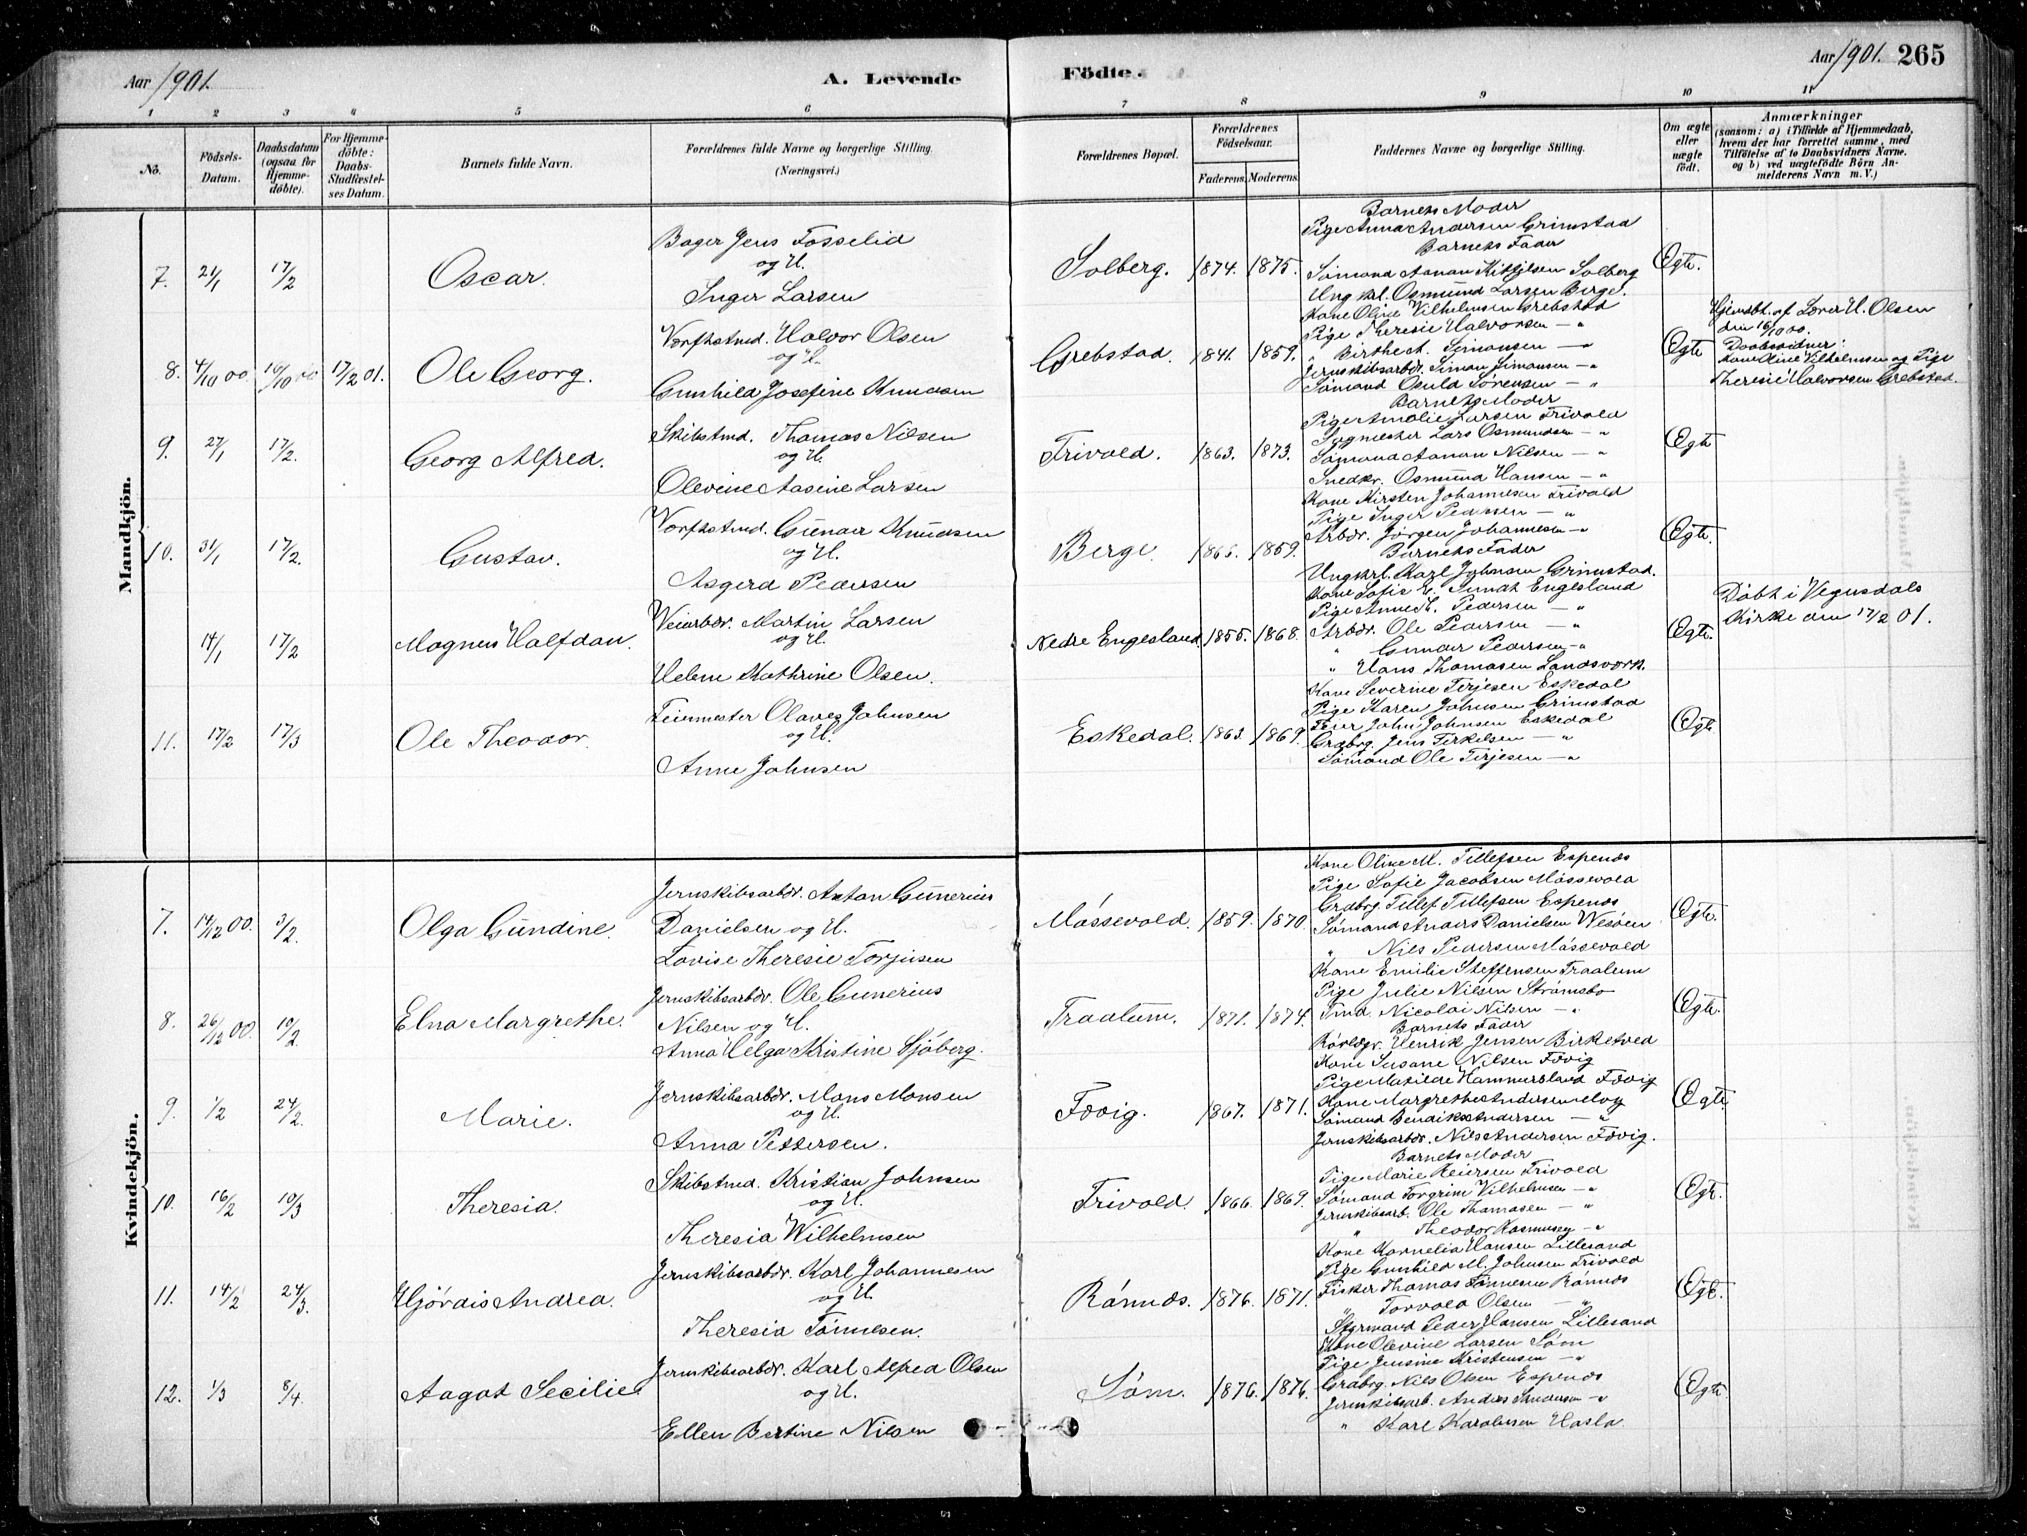 Aar 1901.
A. Levende
Födte.
Aar 1901. 265
1 2 3 4 5 6 7 8 9 10 11
No.
Födsels-Datum.
Daabsdatum (ogsaa for Hjemme-döbte).
For Hjemme-döbte: Daabs-Stadfæstel-ses Datum.
Barnets fulde Navn.
Forældrenes fulde Navne og borgerlige Stilling. (Næringsvei.)
Forældrenes Bopæl.
Forældrenes Födselsaar.
Faderens. Moderens.
Faddernes Navne og borgerlige Stilling.
Om ægte eller uægte födt.
Anmærkninger
(saasom: a) i Tilfælde af Hjemmedaab,
hvem der har forrettet samme, med
Tilföielse af to Daabsvidners Navne.
og b) ved uægtefödte Börn An-
melderens Navn m. V.)
Mandkjön.
7. 21/1 17/2 Oscar.
Bager Jens Fosselid
og H.
Inger Larsen
Solberg. 1874. 1875.
Barnets Moder
Pige Anna Andersen Grimstad
Barnets Fader
Sømand Aanan Kittilsen Solberg
Ungkrl. Osmund Larsen Berge.
Ægte.
8. 4/10 00 16/10 00 17/2 01. Ole Georg.
Værftstmd. Halvor Olsen
og H.
Gunhild Josefine Knudsen
Grebstad. 1841. 1859.
Kone Oline Vilhelmsen Grebstad
Pige Theresie Halvorsen — "
" Birthe A. Simonsen — "
Jernskibsarbdr. Simon Simonsen — "
Sømand Osuld Sørensen — "
Ægte
Hjemdbt. af Lærer H. Olsen
den 16/10 00.
Daabsvidner:
Kone Oline Vilhelmsen og Pige
Theresie Halvorsen Grebstad.
9. 27/1 17/2. Georg Alfred.
Skibstmd. Thomas Nilsen
og H.
Olevine Aasine Larsen
Trivold. 1863. 1873.
Barnets Moder
Pige Amalie Larsen Trivold
Sagmester Lars Osmundsen — "
Sømand Aanan Nilsen — "
Snedkr. Osmund Hansen — "
Ægte
10. 31/1 17/2. Gustav.
Værftstmd. Gunder Knudsen
og H.
Asgerd Pedersen
Berge. 1866. 1859.
Kone Kirsten Johannesen Trivold
Pige Inger Pedersen — "
Arbdr. Jörgen Johannesen — "
Barnets Fader
Ungkrl. Karl Johnsen Grimstad.
Ægte.
14/1 17/2 Magnus Halfdan.
Veiarbdr. Martin Larsen
og H.
Helene Kathrine Olsen.
Nedre Engesland. 1855. 1868.
Kone Sofie E. Engesland
Pige Anne K. Pedersen — "
Arbdr. Ole Pedersen — "
" Gunder Pedersen — "
" Hans Thomasen Landsværk.
Ægte.
Döbt i Vegusdals
Kirke den 17/2 01.
11. 17/2 17/3 Ole Theodor.
Feiermester Olaves Johnsen
og H.
Anne Johnsen
Eskedal. 1863. 1869.
Kone Severine Terjesen Eskedal
Pige Karen Johnsen Grimstad
Feier John Johnsen Eskedal
Grdbrg. Jens Terkelsen — "
Sömand Ole Terjesen — "
Ægte
Kvindekjön.
7. 14/12 00. 3/2. Olga Gundine.
Jernskibsarbdr. Anton Gunerius
Danielsen og H.
Lovise Theresie Torjusen
Møssevold. 1859. 1870.
Kone Oline M. Tellefsen Espenæs
Pige Sofie Jacobsen Møssevold
Grdbrg Tellef Tellefsen Espenæs
Sömand Anders Danielsen Vesøen
" Nils Pedersen Møssevold
Ægte.
8. 26/12 00. 10/2. Elna Margrethe.
Jernskibsarbdr. Ole Gunerius
Nilsen og H.
Anna Helga Kristine Sjöberg.
Traalum. 1871. 1874.
Kone Emilie Steffensen Traalum
Pige Julie Nilsen Strømsbo
Tmd. Nicolai Nilsen — "
Barnets Fader
Henrik Jensen Birketved
Ægte.
9. 1/2 24/2. Marie.
Jernskibsarbdr. Mons Monsen
og H.
Anna Pettersen.
Fævig. 1867. 1871.
Kone Susane Nilsen Fævig
Pige Matilde Hammersland Fævig
Kone Margrethe Andersen
Sömand Bendiks Andersen — "
Jernskibsarbdr. Nils Andersen Fævig.
Ægte.
10. 16/2 10/3 Theresia.
Skibstmd. Kristian Johnsen
og H.
Theresia Wilhelmsen
Trivold. 1866. 1869.
Barnets Moder
Pige Marie Reiersen Trivold
Sømand Torgrim Vilhelmsen — "
Jernskibsarb. Ole Thomasen — "
" Theodor Rasmussen — "
Ægte.
11. 14/2 24/3. Hjördis Andrea.
Jernskibsarbdr. Karl Johannesen
og H.
Theresia Tönnesen.
Rönnæs. 1876. 1871.
Kone Kornelia Hansen Lillesand
Pige Gunhild M. Johnsen Trivold
Fisker Thomas Tönnesen Rönnæs
" Torvald Olsen — "
Styrmand Peder Hansen Lillesand
Ægte.
12. 1/3 8/4. Aagot Secilie
Jernskibsarbdr. Karl Alfred Olsen
og H.
Ellen Bertine Nilsen
Söm. 1876. 1876.
Kone Olevine Larsen Söm
Pige Jensine Kristensen — "
Grdbrg. Nils Olsen Espenæs
Jernskibsarb. Anders — "
" Karl Karolusen Hasla.
Ægte.